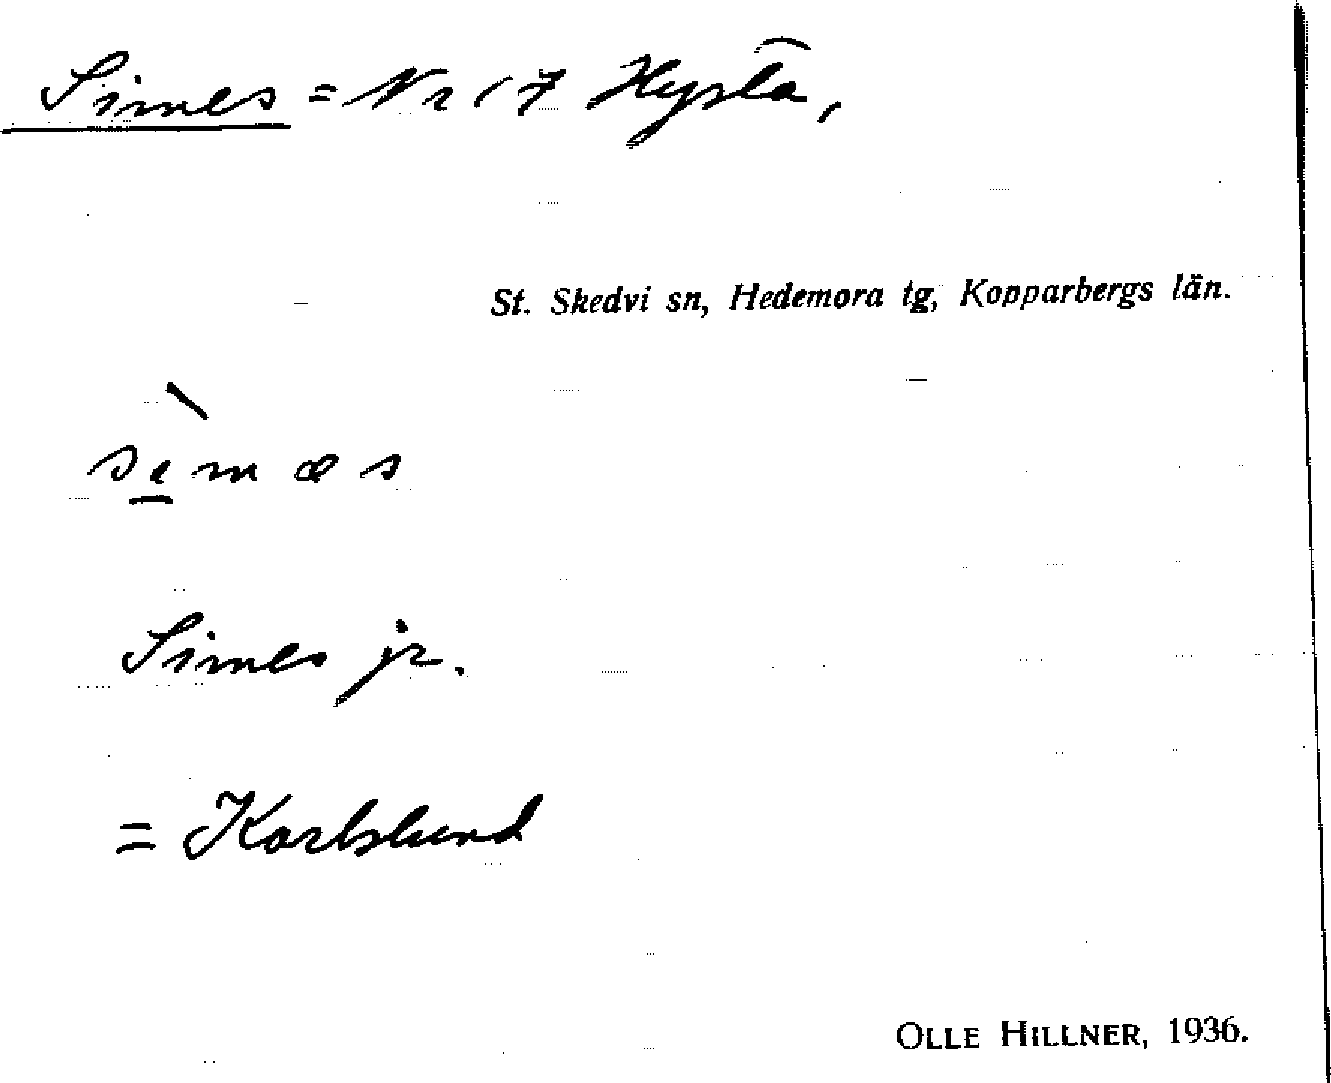 Simes = Nr 17 Hysta,
St. Skedvi sn, Hedemora tg, Kopparbergs län.
simæs
Simes jr.
= Karlslund
OLLE HILLNER, 1936.